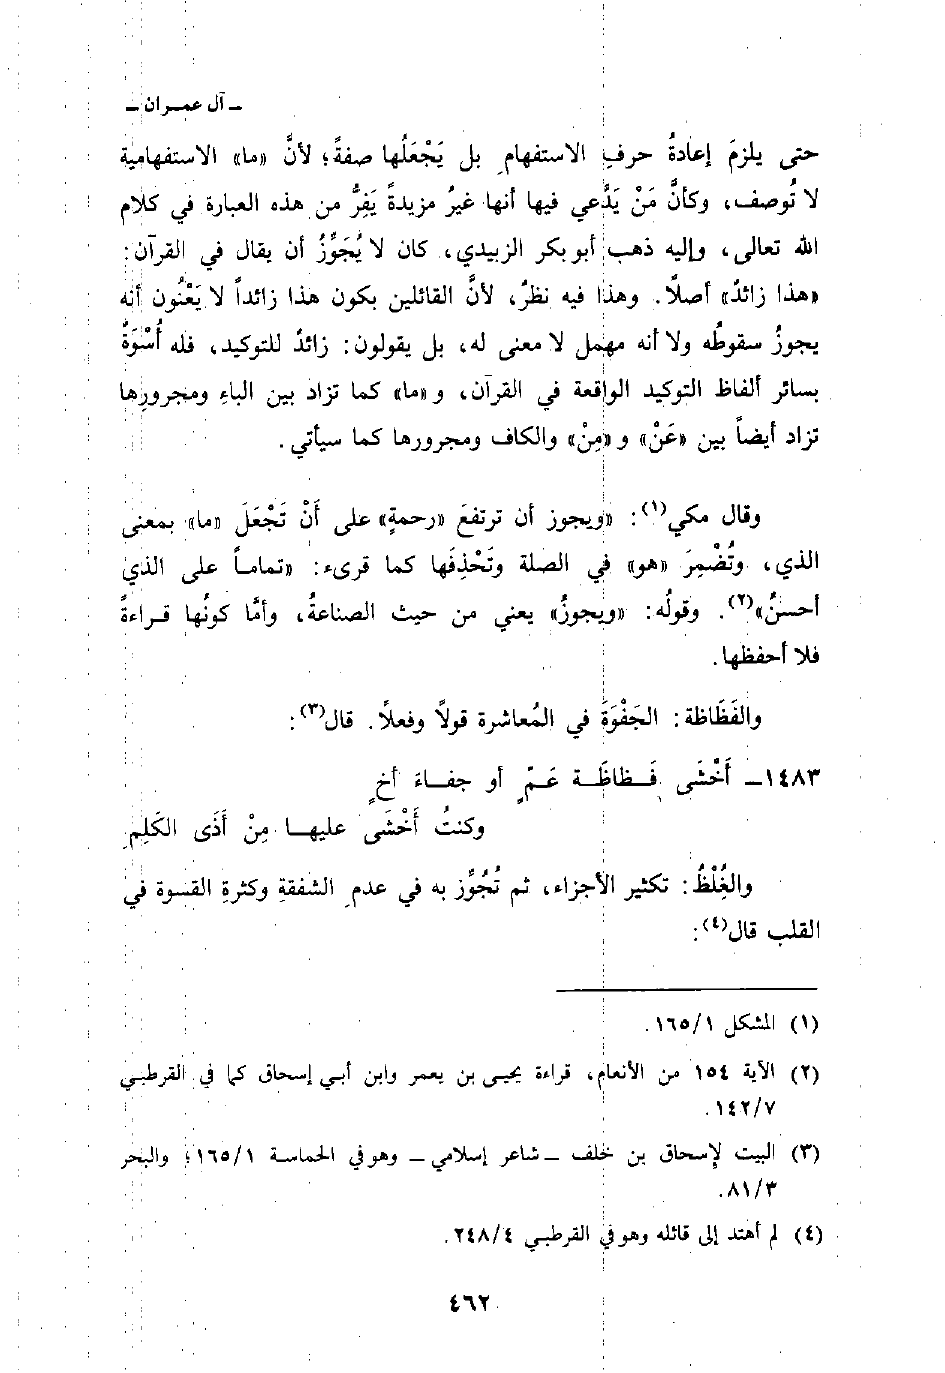 ـ آل عمـران ـ
حتى يلزمَ إعادةُ حرفِ الاستفهامِ بل يَجْعَلُها صفةً؛ لأنَّ «ما» الاستفهامية
لا تُوصف، وكأنَّ مَنْ يَدَّعي فيها أنها غيرُ مزيدةً يَفِرُّ من هذه العبارة في كلام
الله تعالى، وإليه ذهب أبو بكر الزبيدي، كان لا يُجَوِّزُ أن يقال في القرآن:
«هذا زائدٌ» أصلًا. وهذا فيه نظرٌ، لأنَّ القائلين بكون هذا زائداً لا يَعْنُون أنه
يجوزُ سقوطُه ولا أنه مهمل لا معنى له، بل يقولون: زائدٌ للتوكيد، فله أُسْوَةٌ
بسائر ألفاظ التوكيد الواقعة في القرآن، و«ما» كما تزاد بين الباءِ ومجرورِها
تزاد أيضاً بين «عَنْ» و «مِنْ» والكاف ومجرورها كما سيأتي.
وقال مكي(١): «ويجوز أن ترتفعَ «رحمةٍ» على أَنْ تَجْعَلَ «ما» بمعنى
الذي، وتُضْمِرَ «هو» في الصلة وتَحْذِفَها كما قرىء: «تماماً على الذي
أحسنُ»(٢). وقولُه: «ويجوزُ» يعني من حيث الصناعةُ، وأمَّا كونُها قـراءةً
فلا أحفظها.
والفَظَاظة: الجَفْوَةُ في المُعاشرة قولًا وفعلًا. قال(٣):
١٤٨٣ـ أَخْشَى فَـظاظَـة عَـمٍّ أو جفـاءَ أخٍ
وكنتُ أَخْشَى عليهـا مِنْ أَذَى الكَلِمِ
والغِلْظُ: تكثير الأجزاء، ثم تُجُوِّز به في عدمِ الشفقةِ وكثرةِ القسوة في
القلب قال(٤):
(١) المشكل ١/١٦٥.
(٢) الآية ١٥٤ من الأنعام، قراءة يحيى بن يعمر وابن أبي إسحاق كما في القرطبي
٧/١٤٢.
(٣) البيت لإسحاق بن خلف ـ شاعر إسلامي ـ وهو في الحماسة ١/١٦٥؛ والبحر
٣/٨١.
(٤) لم أهتد إلى قائله وهو في القرطبي ٤/٢٤٨.
٤٦٢